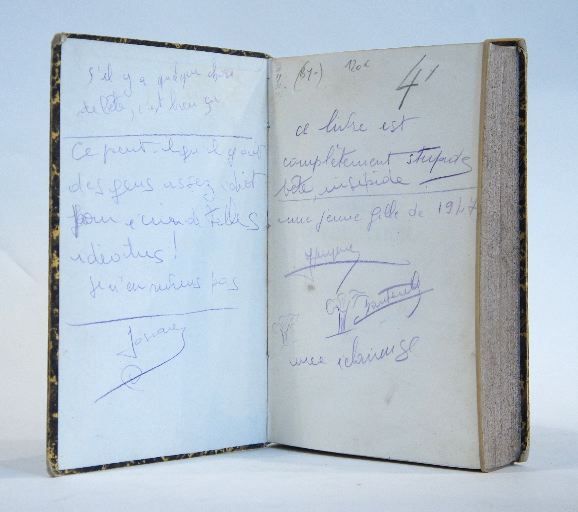 S'il y a quelque chose
de bête, c'est bien ça
Ce peut-il qu'il y ait
des gens assez idiot
pour écrire de telles
idioties !
je n'en reviens pas
Josiane
(81-) 120f 41
ce livre est
complètement stupide
bête, insipide
une jeune fille de 1947
une éclaireuse